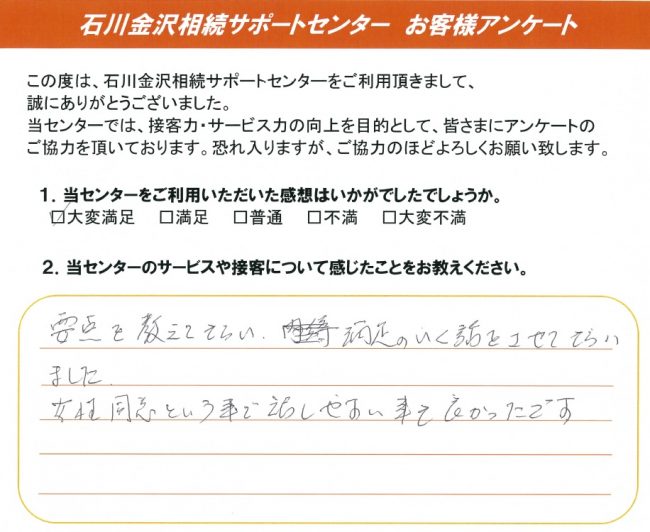 石川金沢相続サポートセンター お客様アンケート
この度は、石川金沢相続サポートセンターをご利用頂きまして、
誠にありがとうございました。
当センターでは、接客力・サービス力の向上を目的として、皆さまにアンケートの
ご協力を頂いております。恐れ入りますが、ご協力のほどよろしくお願い致します。
1. 当センターをご利用いただいた感想はいかがでしたでしょうか。
☑大変満足 □満足 □普通 □不満 □大変不満
2. 当センターのサービスや接客について感じたことをお教えください。
要点を教えてもらい、満足のいく話をさせてもらい
ました。
女性同志という事で話しやすい事も良かったです